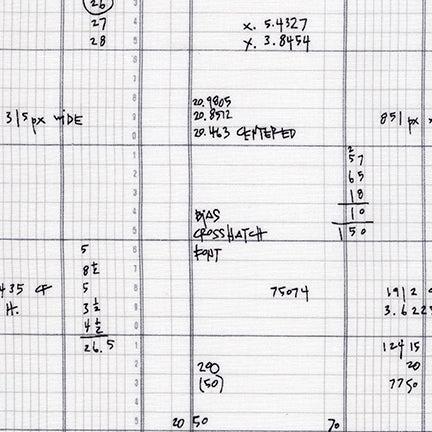 26
27
28
x. 5.4327
y. 3.8454
315px wide
20.9805
20.8572
20.463 CENTERED
851 px
2
57
65
18
10
150
BIAS
CROSSHATCH
FONT
5
8 1/2
5
3 1/2
4 1/2
26.5
435 CF
H.
75074
1912
3.622
12415
20
7750
290
(50)
20 50
70